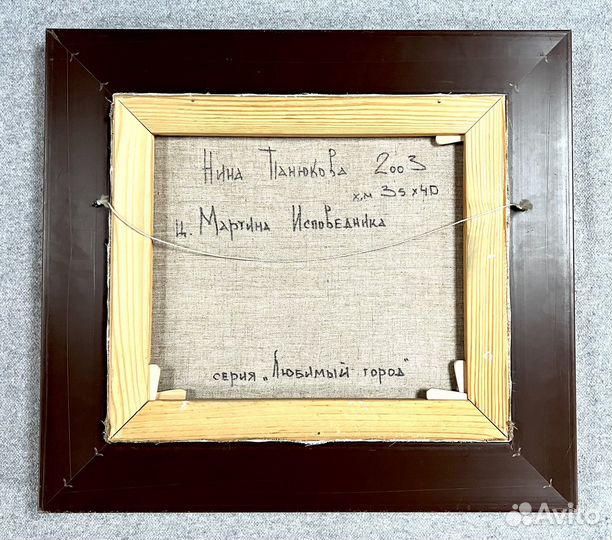 Нина Панюкова 2003
х,м 35x40
ц. Мартина Исповедника
серия „Любимый город"
Avito